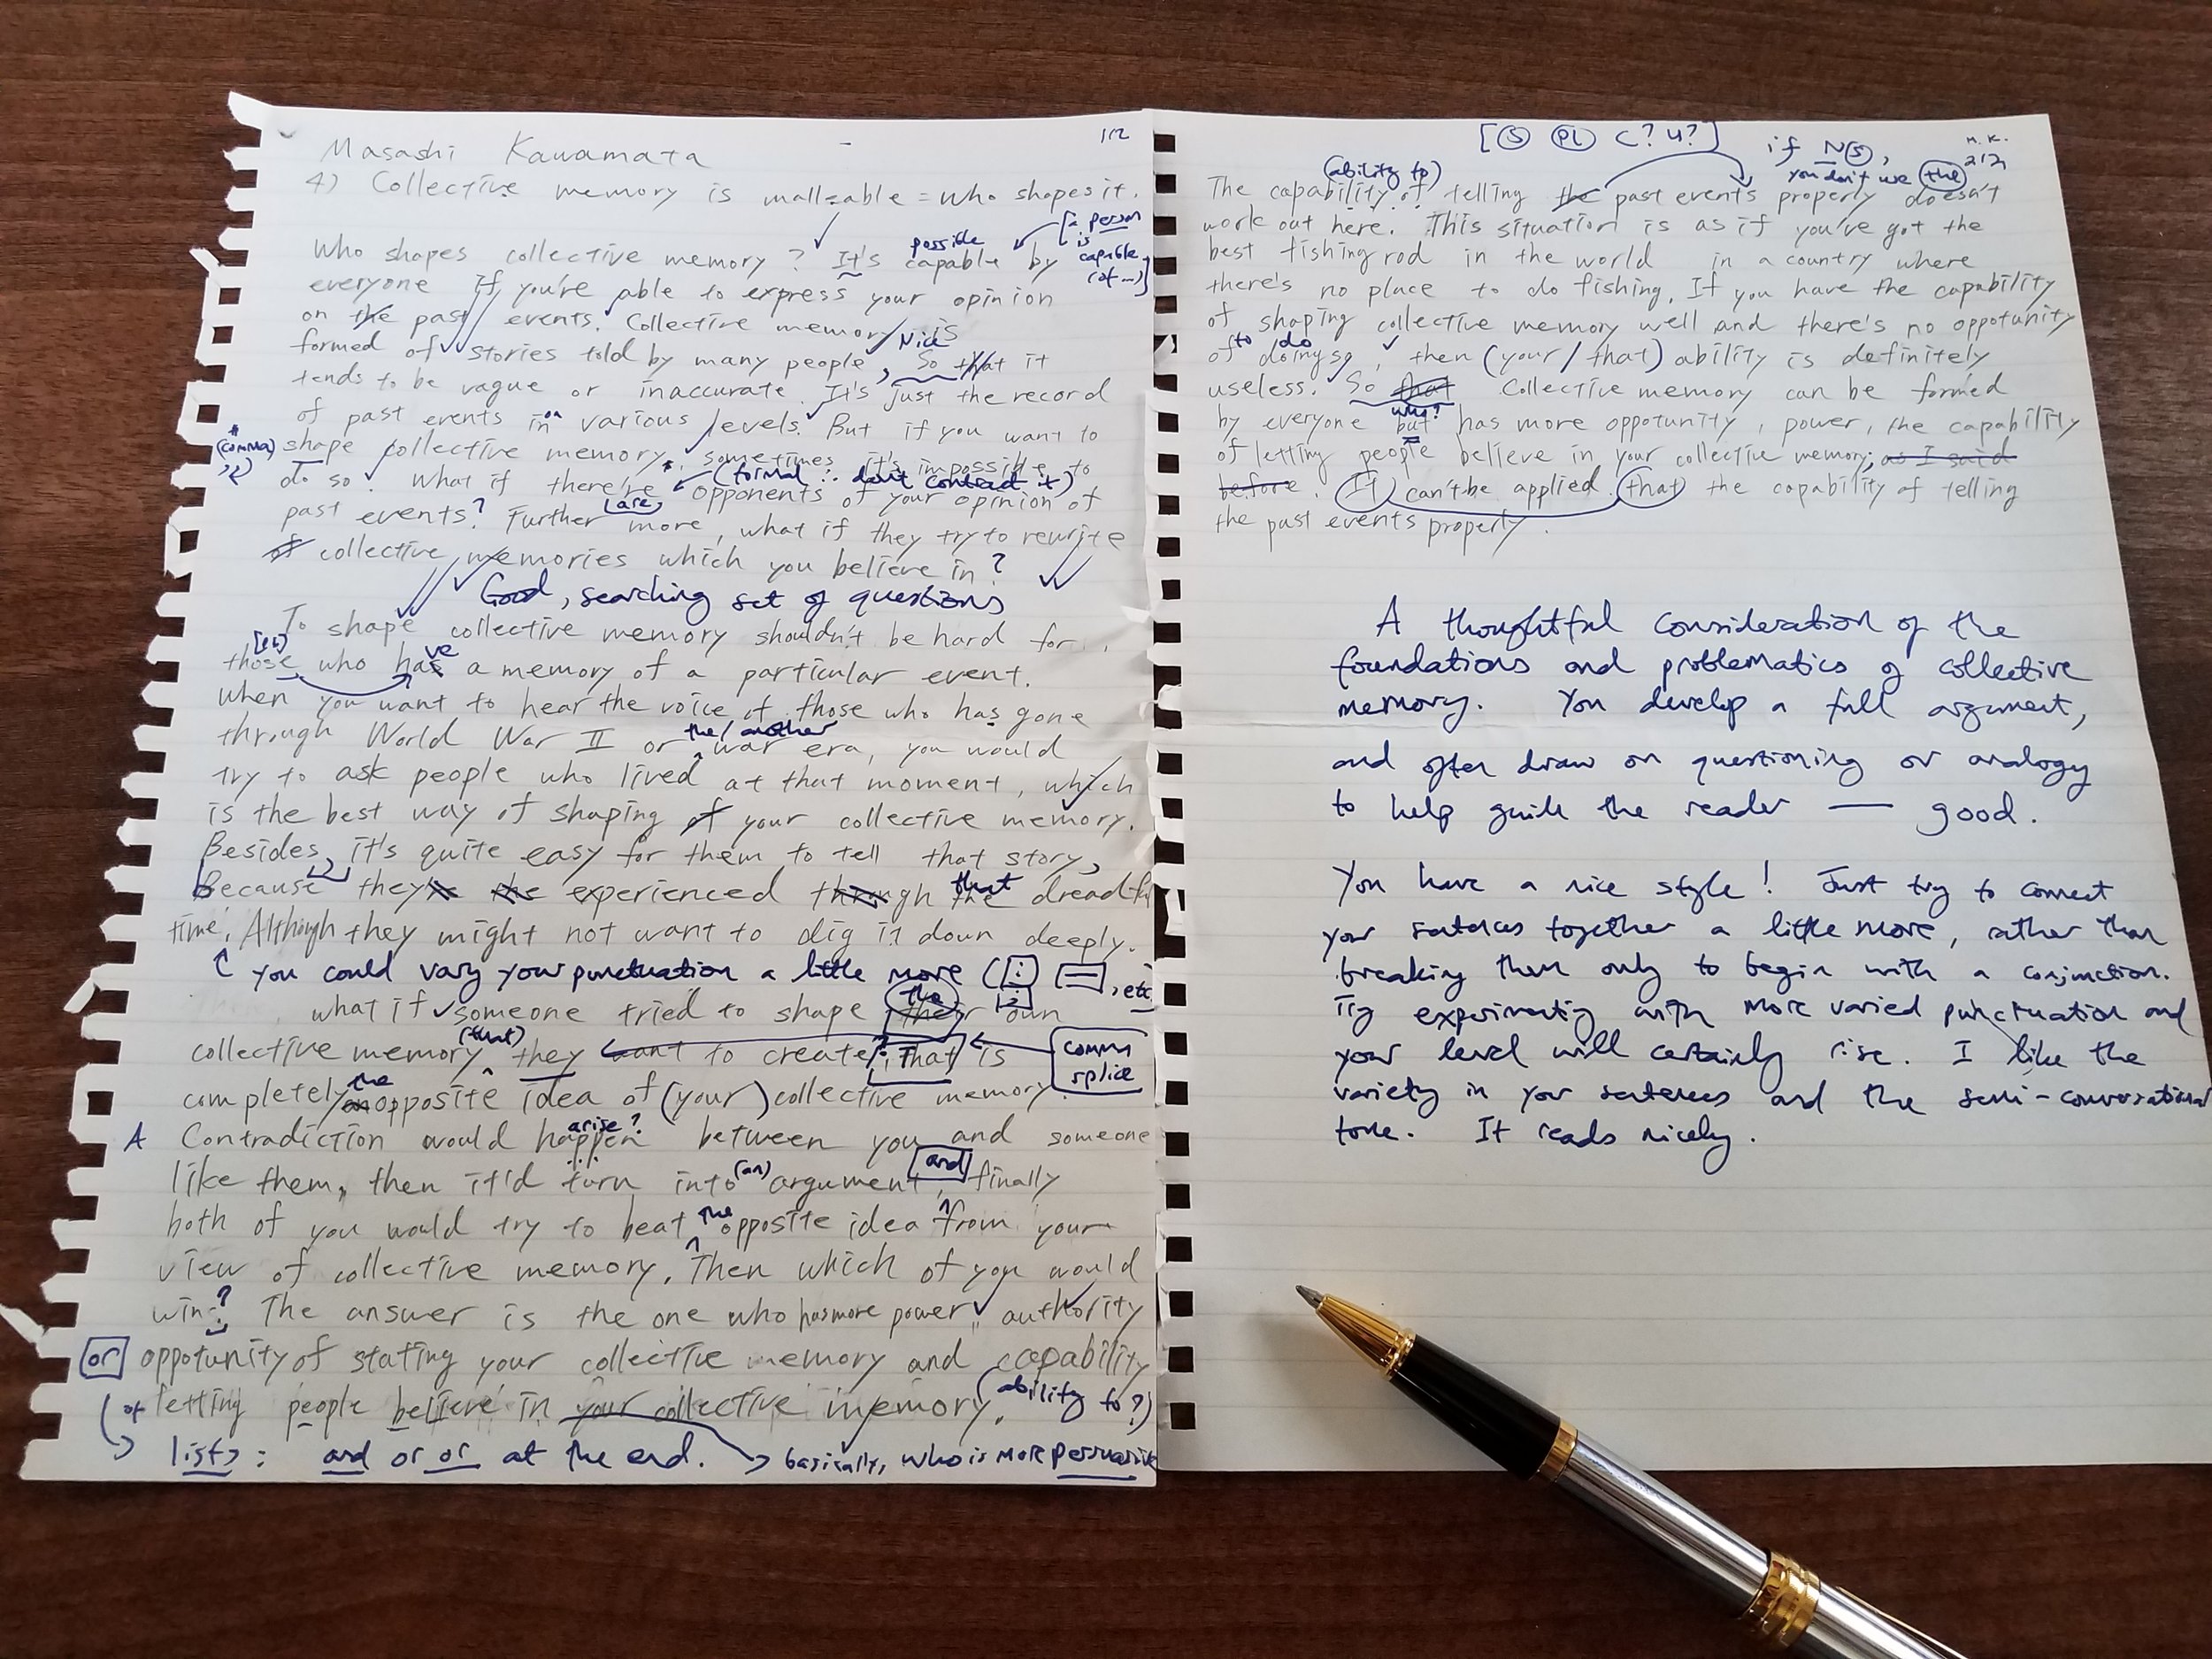 1/2
Masashi Kawamata
4) Collective memory is malleable = who shapes it.
[a person
possible
is
Who shapes collective memory? It's capable by
capable
(of...)]
everyone if you're able to express your opinion
on the past events. Collective memory is
Nice
formed of stories told by many people, so that it
tends to be vague or inaccurate. It's just the record
of past events in various levels. But if you want to
on
(comma)
shape collective memory, sometimes it's impossible to
(formal ∴ don't contract it)
do so. What if there're opponents of your opinion of
(are)
past events? Further more, what if they try to rewrite
of collective memories which you believe in?
Good, searching set of questions
To shape collective memory shouldn't be hard for
those who has a memory of a particular event.
ve
when you want to hear the voice of those who has gone
through World War II or war era, you would
the/another
try to ask people who lived at that moment, which
is the best way of shaping of your collective memory.
Besides, it's quite easy for them to tell that story,
Because they the experienced through the dreadful
that
time. Although they might not want to dig it down deeply.
you could vary your punctuation a little more ( : — , etc.
;
what if someone tried to shape their own
the
collective memory they want to create, That is
(that)
comma
splice
completely an opposite idea of (your) collective memory.
the
A Contradiction would happen between you and someone
arise?
like them, then it'd turn into argument, finally
(an)
and
both of you would try to beat opposite idea from your
the
view of collective memory. Then which of you would
win? The answer is the one who has more power, authority
or oppotunity of stating your collective memory and capability
of letting people believe in your collective memory. (ability to?)
lists: and or or at the end. → basically, who is more persuasive
[S PL C? U?]
if N(s),
you don't use the
M.K.
2/2
(ability to)
The capability of telling the past events properly doesn't
work out here. This situation is as if you've got the
best fishing rod in the world in a country where
there's no place to do fishing. If you have the capability
of shaping collective memory well and there's no oppotunity
to do
of doing so, then (your/that) ability is definitely
useless. So that Collective memory can be formed
who?
by everyone but has more oppotunity, power, the capability
of letting people believe in your collective memory; as I said
before. It can't be applied that the capability of telling
the past events properly.
A thoughtful consideration of the
foundations and problematics of collective
memory. You develop a full argument,
and often draw on questioning or analogy
to help guide the reader — good.
You have a nice style! Just try to connect
your sentences together a little more, rather than
breaking them only to begin with a conjunction.
Try experimenting with more varied punctuation and
your level will certainly rise. I like the
variety in your sentences and the semi-conversational
tone. It reads nicely.